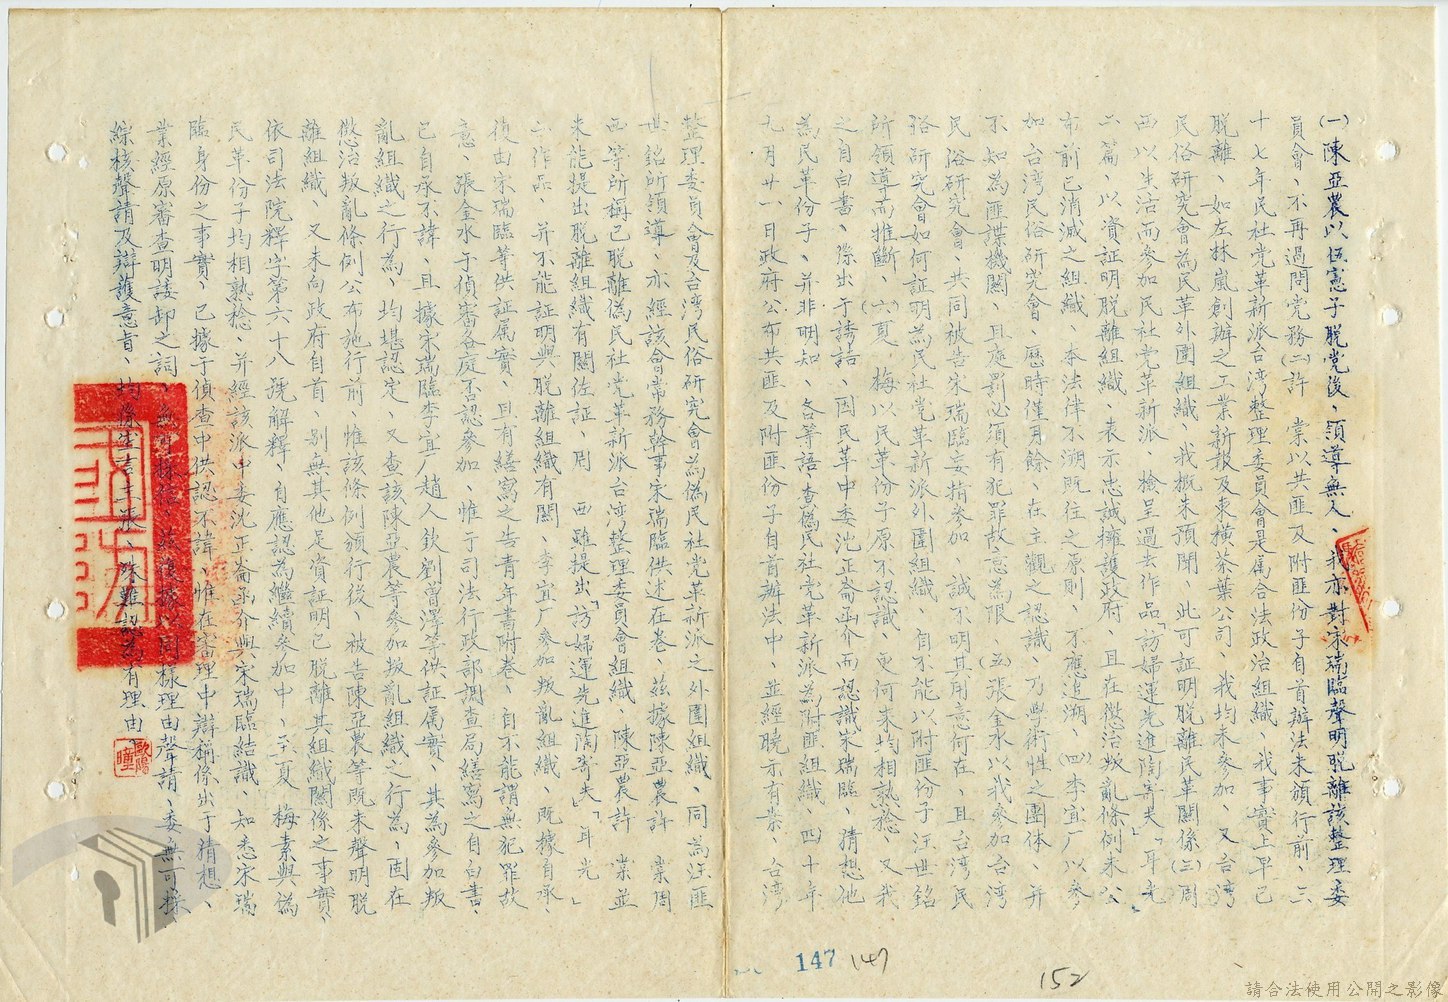 ㈠陳亞農以伍憲子脫党後、領導無人、我亦對宋瑞臨聲明脫離該整理委
員會、不再過問党務㈡許　棠以共匪及附匪份子自首辦法未頒行前、三
十七年民社党革新派台湾整理委員會是属合法政治組織、我事實上早已
脫離、如左林嵐創辦之工業新報及東橫茶葉公司、我均未參加、又台湾
民俗研究會為民革外圍組織、我概未預聞、此可証明脫離民革關係㈢周
西以生活而參加民社党革新派、檢呈過去作品「訪婦運先進陶寄夫」「耳光」
二篇、以資証明脫離組織、表示忠誠擁護政府、且在懲治叛亂條例未公
布前已消滅之組織、本法律不溯既往之原則、不應追溯、㈣李宜厂以參
加台湾民俗研究會、歷時僅月餘、在主觀之認識、乃學術性之團体、并
不知為匪諜機關、且處罰必須有犯罪故意為限、㈤張金水以我參加台湾
民俗研究會、共同被告宋瑞臨妄指參加、誠不明其用意何在、且台湾民
俗研究會如何証明為民社党革新派外圍組織、自不能以附匪份子汪世銘
所領導而推斷、㈥夏　梅以民革份子原不認識、更何来均相熟稔、又我
之自白書、除出于誘詰、因民革中委沈正崙函介而認識宋瑞臨、猜想他
為民革份子、并非明知、各等語查偽民社党革新派為附匪組織、四十年
九月廿一日政府公布共匪及附匪份子自首辦法中、並經曉示有案、台湾
整理委員會及台湾民俗研究會為偽民社党革新派之外圍組織、同為汪匪
世銘所領導、亦經該會常務幹事宋瑞臨供述在卷、茲據陳亞農許　棠周
西等所稱已脫離偽民社党革新派台湾整理委員會組織、陳亞農許　棠並
未能提出脫離組織有關佐証、周　西雖提出「訪婦運先進陶寄夫」「耳光」
二作品、并不能証明與脫離組織有關、李宜厂參加叛亂組織、既據自承、
復由宋瑞臨等供証属實、且有繕寫之告青年書附卷、自不能謂無犯罪故
意、張金水于偵審各庭否認參加、惟于司法行政部調查局繕寫之自白書、
已自承不諱、且據宋瑞臨李宜厂趙人欽劉曾澤等供証属實、其為參加叛
亂組織之行為、均堪認定、又查該陳亞農等參加叛亂組織之行為、固在
懲治叛亂條例公布施行前、惟該條例頒行後、被告陳亞農等既未聲明脫
離組織、又未向政府自首、別無其他足資証明已脫離其組織關係之事實、
依司法院釋字第六十八號解釋、自應認為繼續參加中、至夏　梅素與偽
民革份子均相熟稔、并經該派中委沈正崙函介與宋瑞臨結識、知悉宋瑞
臨身份之事實、已據于偵查中供認不諱、惟在審理中辯稱係出于猜想、
業經原審查明諉卸之詞、無可採信、茲復據以同樣理由聲請、委無可採
綜核聲請及辯護意旨、均係空言主張、殊難認為有理由、
歐陽
瞳
147
147
152
請合法使用公開之影像